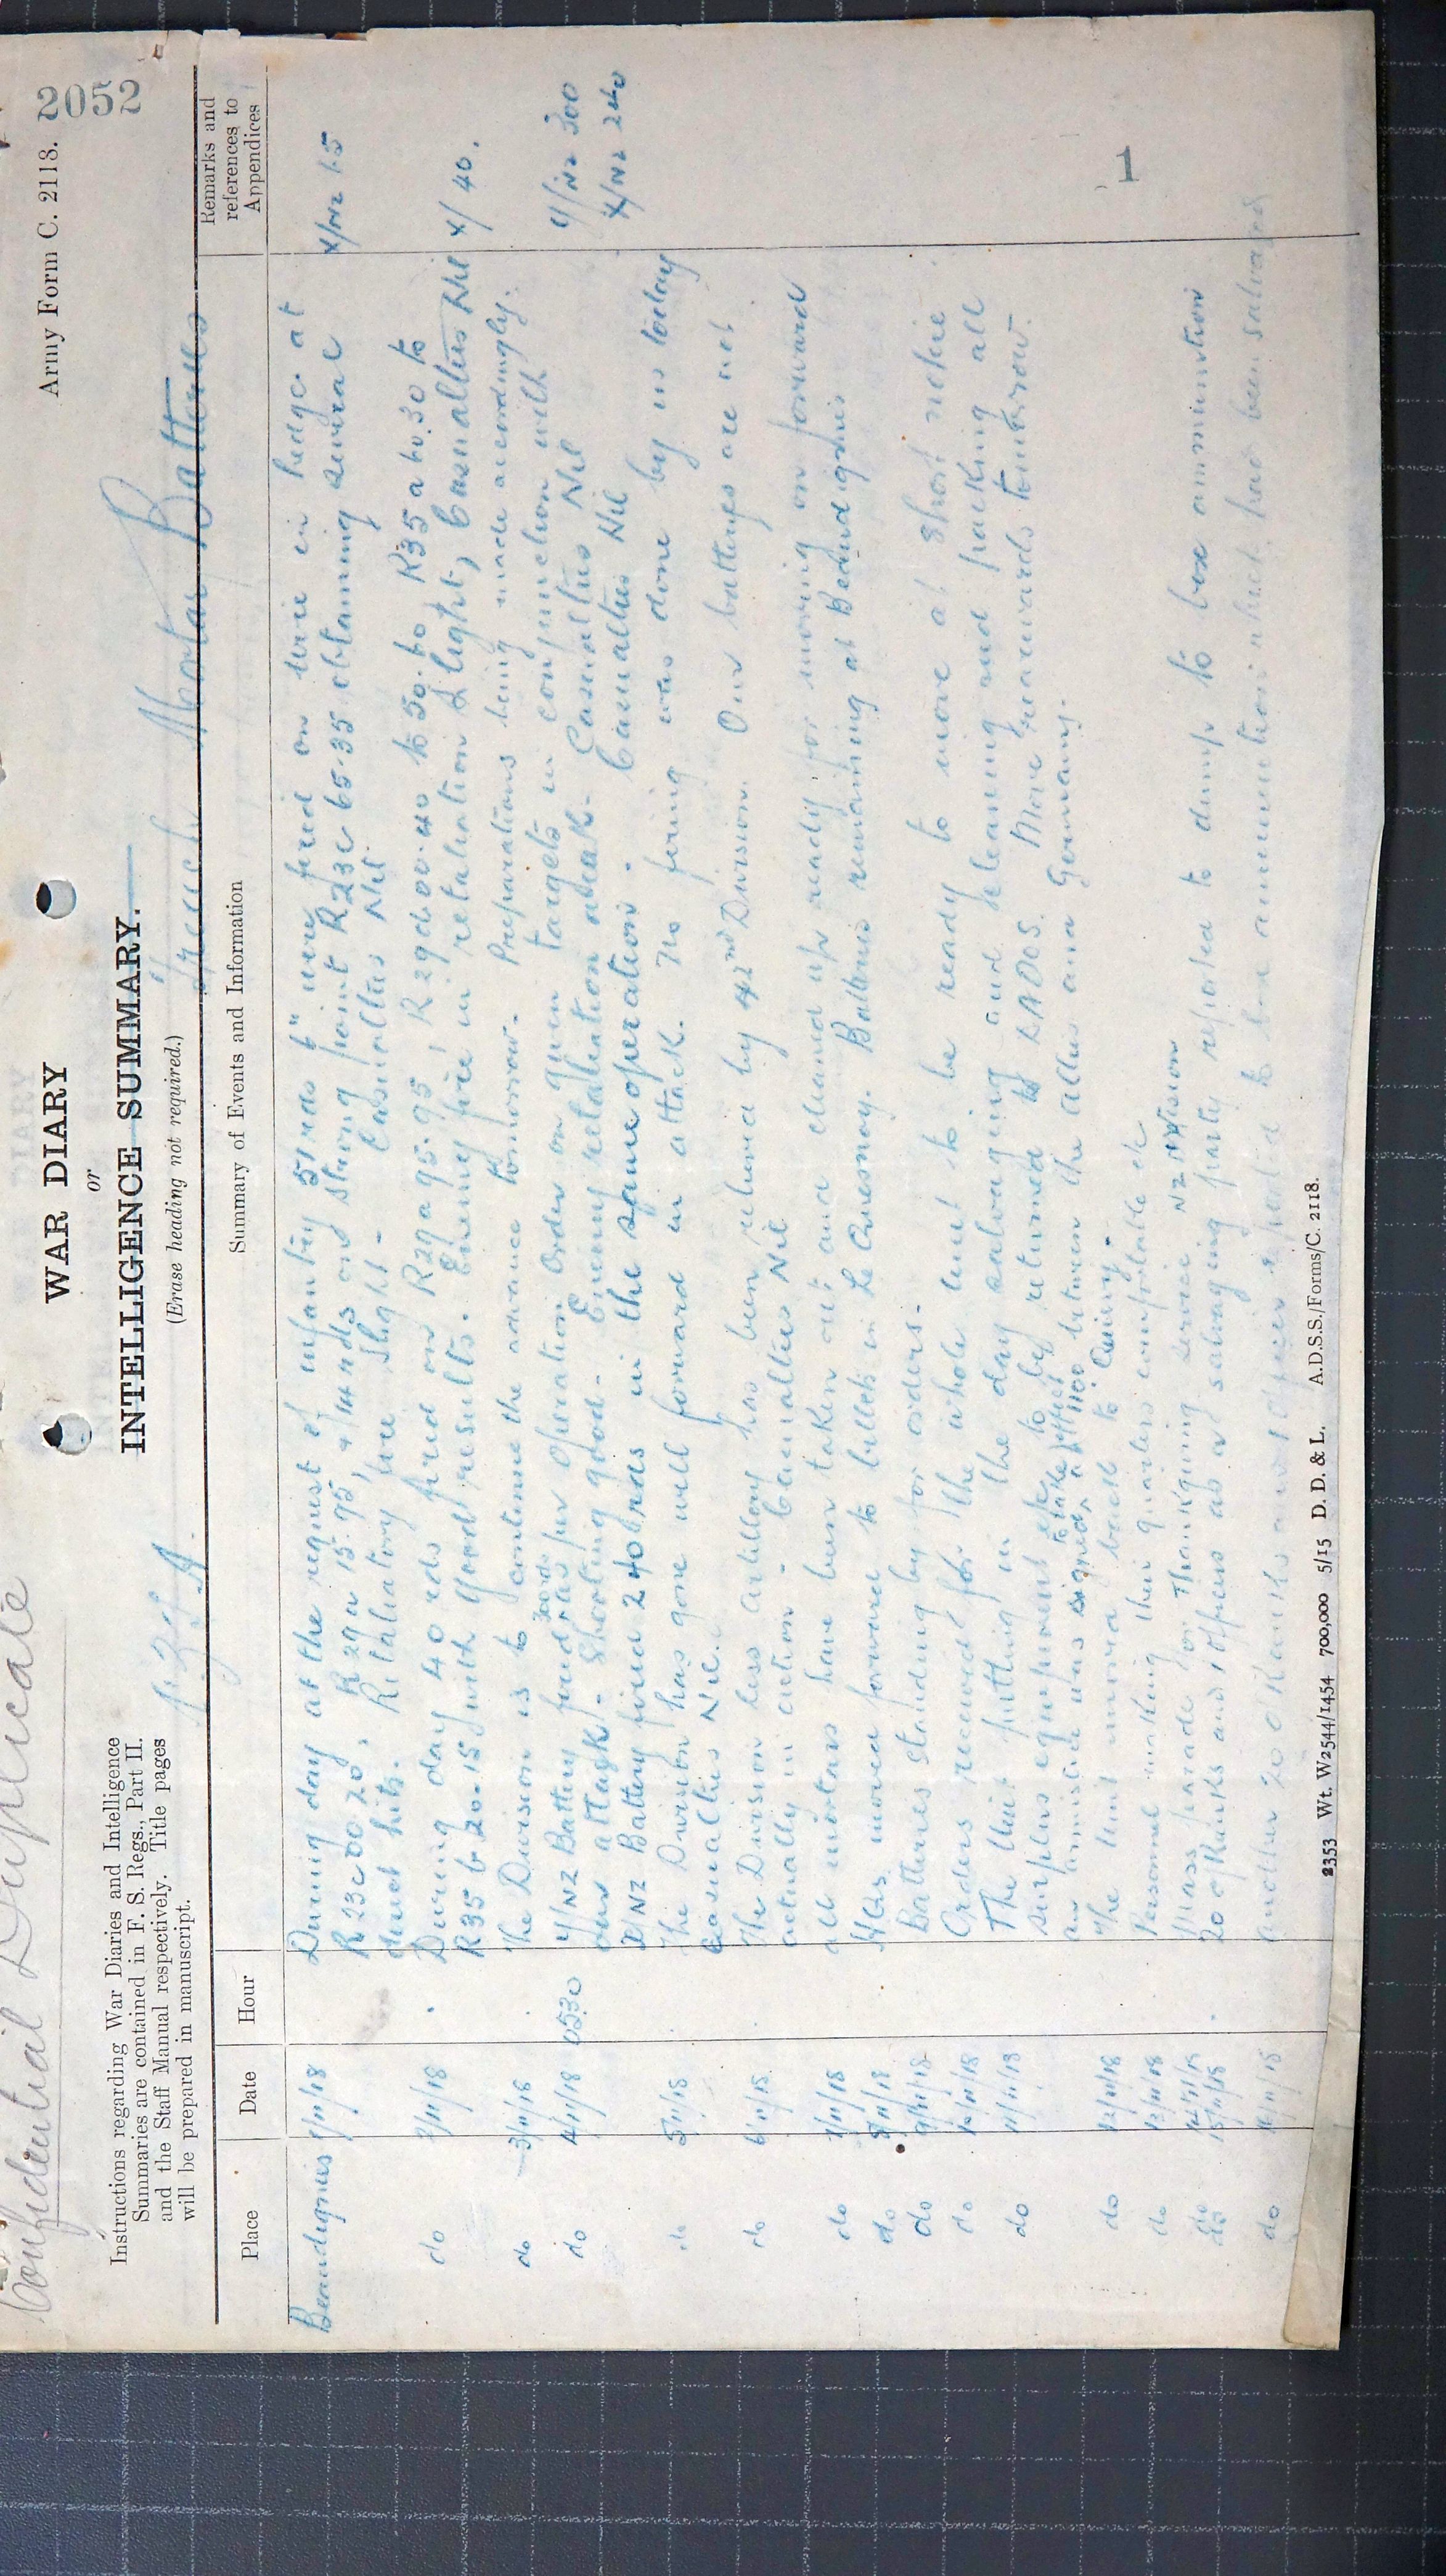 Confidential Duplicate
Army Form C. 2118.
2052
WAR DIARY
or
INTELLIGENCE SUMMARY.
(Erase heading not required.)
Instructions regarding War Diaries and Intelligence
Summaries are contained in F. S. Regs., Part II.
and the Staff Manual respectively. Title pages
will be prepared in manuscript.
Trench Mortar Batteries
Place
Date
Hour
Summary of Events and Information
Remarks and
references to
Appendices
Beaudignies 1/11/18 During day at the request of infantry 51 rds 6" were fired on wire in hedge at X/NZ 65
R23c 00 20, R29a 15.95, & 14 rds on strong point R23c 65.35 obtaining several
direct hits. Retaliatory fire slight - Casualties Nil.
do 2/11/18 During day 40 rds fired on R29a 95.95, R29d 00.40 to 50.60 R35a 60.30 to
R35b 20.15 with good results. Enemy fire in retaliation slight, Casualties Nil X/ 40.
do 3/11/18 The Division is to continue the advance tomorrow. Preparations being made accordingly.
do 4/11/18 0530 Y/NZ Battery fired 300 rds per Operation Order on given targets in conjunction with Y/NZ 300
our attack. Shooting good. Enemy retaliation weak. Casualties Nil X/NZ 240
X/NZ Battery fired 240 rds in the same operation. Casualties Nil
do 5/11/18 The Division has gone well forward in attack. No firing was done by us today
Casualties Nil.
do 6/11/18 The Division less artillery has been relieved by 42nd Division. Our batterys are not
actually in action - Casualties Nil
do 7/11/18 all mortars have been taken out and cleaned up ready for moving on forward
do 8/11/18 Hqs moved forward to billets in Le Quesnoy. Batteries remaining at Beaudignies
do 9/11/18 Batteries standing by for orders.
do 10/11/18 Orders received for the whole unit to be ready to move at short notice
do 11/11/18 The Unit putting in the day salvaging and cleaning and packing all
surplus equipment etc to be returned to DADOS. Move rearwards tomorrow.
an armistice was signed to take effect at 1100 between the allies and Germany.
do 12/11/18 The Unit moved back to Quievy.
do 13/11/18 Personnel making their quarters comfortable etc
do 14/11/18 Mass parade for Thanksgiving Service NZ Division
do 15/11/18 20 O/Ranks and 1 Officer as a salvaging party reported to dump to box ammunition
do 16/11/18 another 20 O Ranks and 1 Officer reported to box ammunition which had been salvaged
1
2353 Wt. W2544/1454 700,000 5/15 D. D. & L. A.D.S.S./Forms/C. 2118.